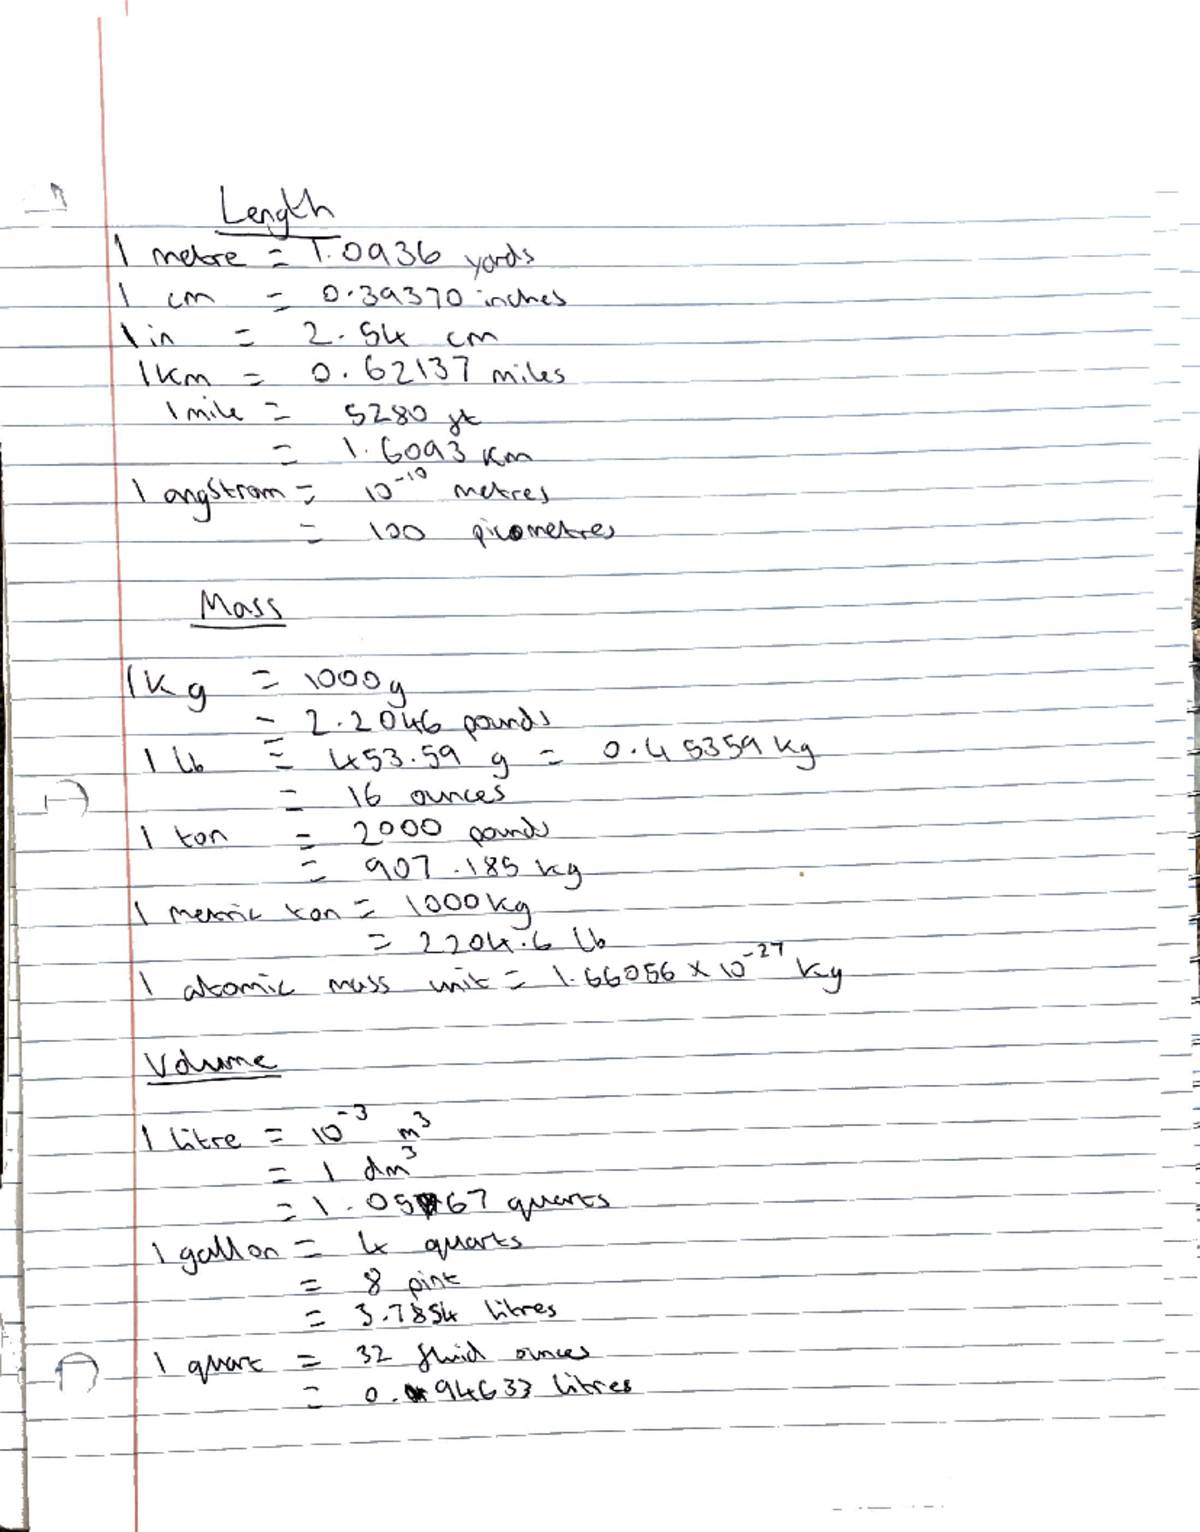 Length
1 metre = 1.0936 yards
1 cm = 0.39370 inches
1 in = 2.54 cm
1 km = 0.62137 miles
1 mile = 5280 ft
= 1.6093 km
1 angstrom = 10⁻¹⁰ metres
= 100 picometres
Mass
1 kg = 1000g
= 2.2046 pounds
1 lb = 453.59 g = 0.45359 kg
= 16 ounces
1 ton = 2000 pounds
= 907.185 kg
1 metric ton = 1000 kg
= 2204.6 lb
1 atomic mass unit = 1.66056 × 10⁻²⁷ kg
Volume
1 litre = 10⁻³ m³
= 1 dm³
= 1.0567 quarts
1 gallon = 4 quarts
= 8 pint
= 3.7854 litres
1 quart = 32 fluid ounces
= 0.94633 litres